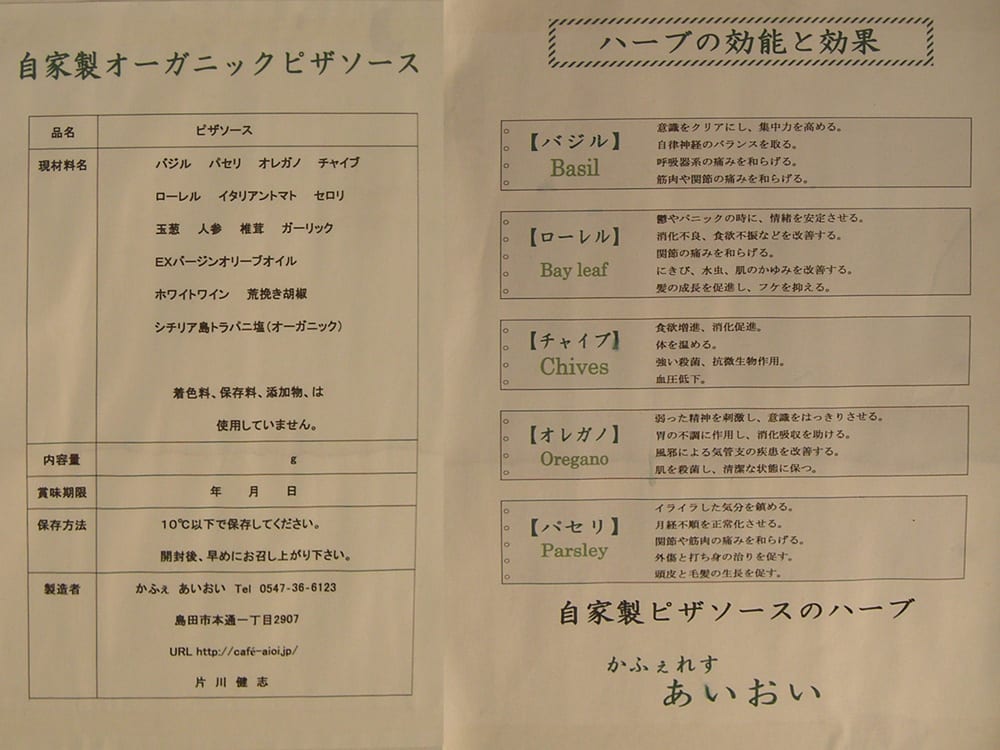 自家製オーガニックピザソース
品名 ピザソース
現材料名 バジル パセリ オレガノ チャイブ
ローレル イタリアントマト セロリ
玉葱 人参 椎茸 ガーリック
EXバージンオリーブオイル
ホワイトワイン 荒挽き胡椒
シチリア島トラパニ塩(オーガニック)
着色料、保存料、添加物、は
使用していません。
内容量 g
賞味期限 年 月 日
保存方法 10℃以下で保存してください。
開封後、早めにお召し上がり下さい。
製造者 かふぇ あいおい Tel 0547-36-6123
島田市本通一丁目2907
URL http://café-aioi.jp/
片川健志
ハーブの効能と効果
【バジル】
Basil
意識をクリアにし、集中力を高める。
自律神経のバランスを取る。
呼吸器系の痛みを和らげる。
筋肉や関節の痛みを和らげる。
【ローレル】
Bay leaf
鬱やパニックの時に、情緒を安定させる。
消化不良、食欲不振などを改善する。
関節の痛みを和らげる。
にきび、水虫、肌のかゆみを改善する。
髪の成長を促進し、フケを抑える。
【チャイブ】
Chives
食欲増進、消化促進。
体を温める。
強い殺菌、抗微生物作用。
血圧低下。
【オレガノ】
Oregano
弱った精神を刺激し、意識をはっきりさせる。
胃の不調に作用し、消化吸収を助ける。
風邪による気管支の疾患を改善する。
肌を殺菌し、清潔な状態に保つ。
【パセリ】
Parsley
イライラした気分を鎮める。
月経不順を正常化させる。
関節や筋肉の痛みを和らげる。
外傷と打ち身の治りを促す。
頭皮と毛髪の生長を促す。
自家製ピザソースのハーブ
かふぇれすと
あいおい